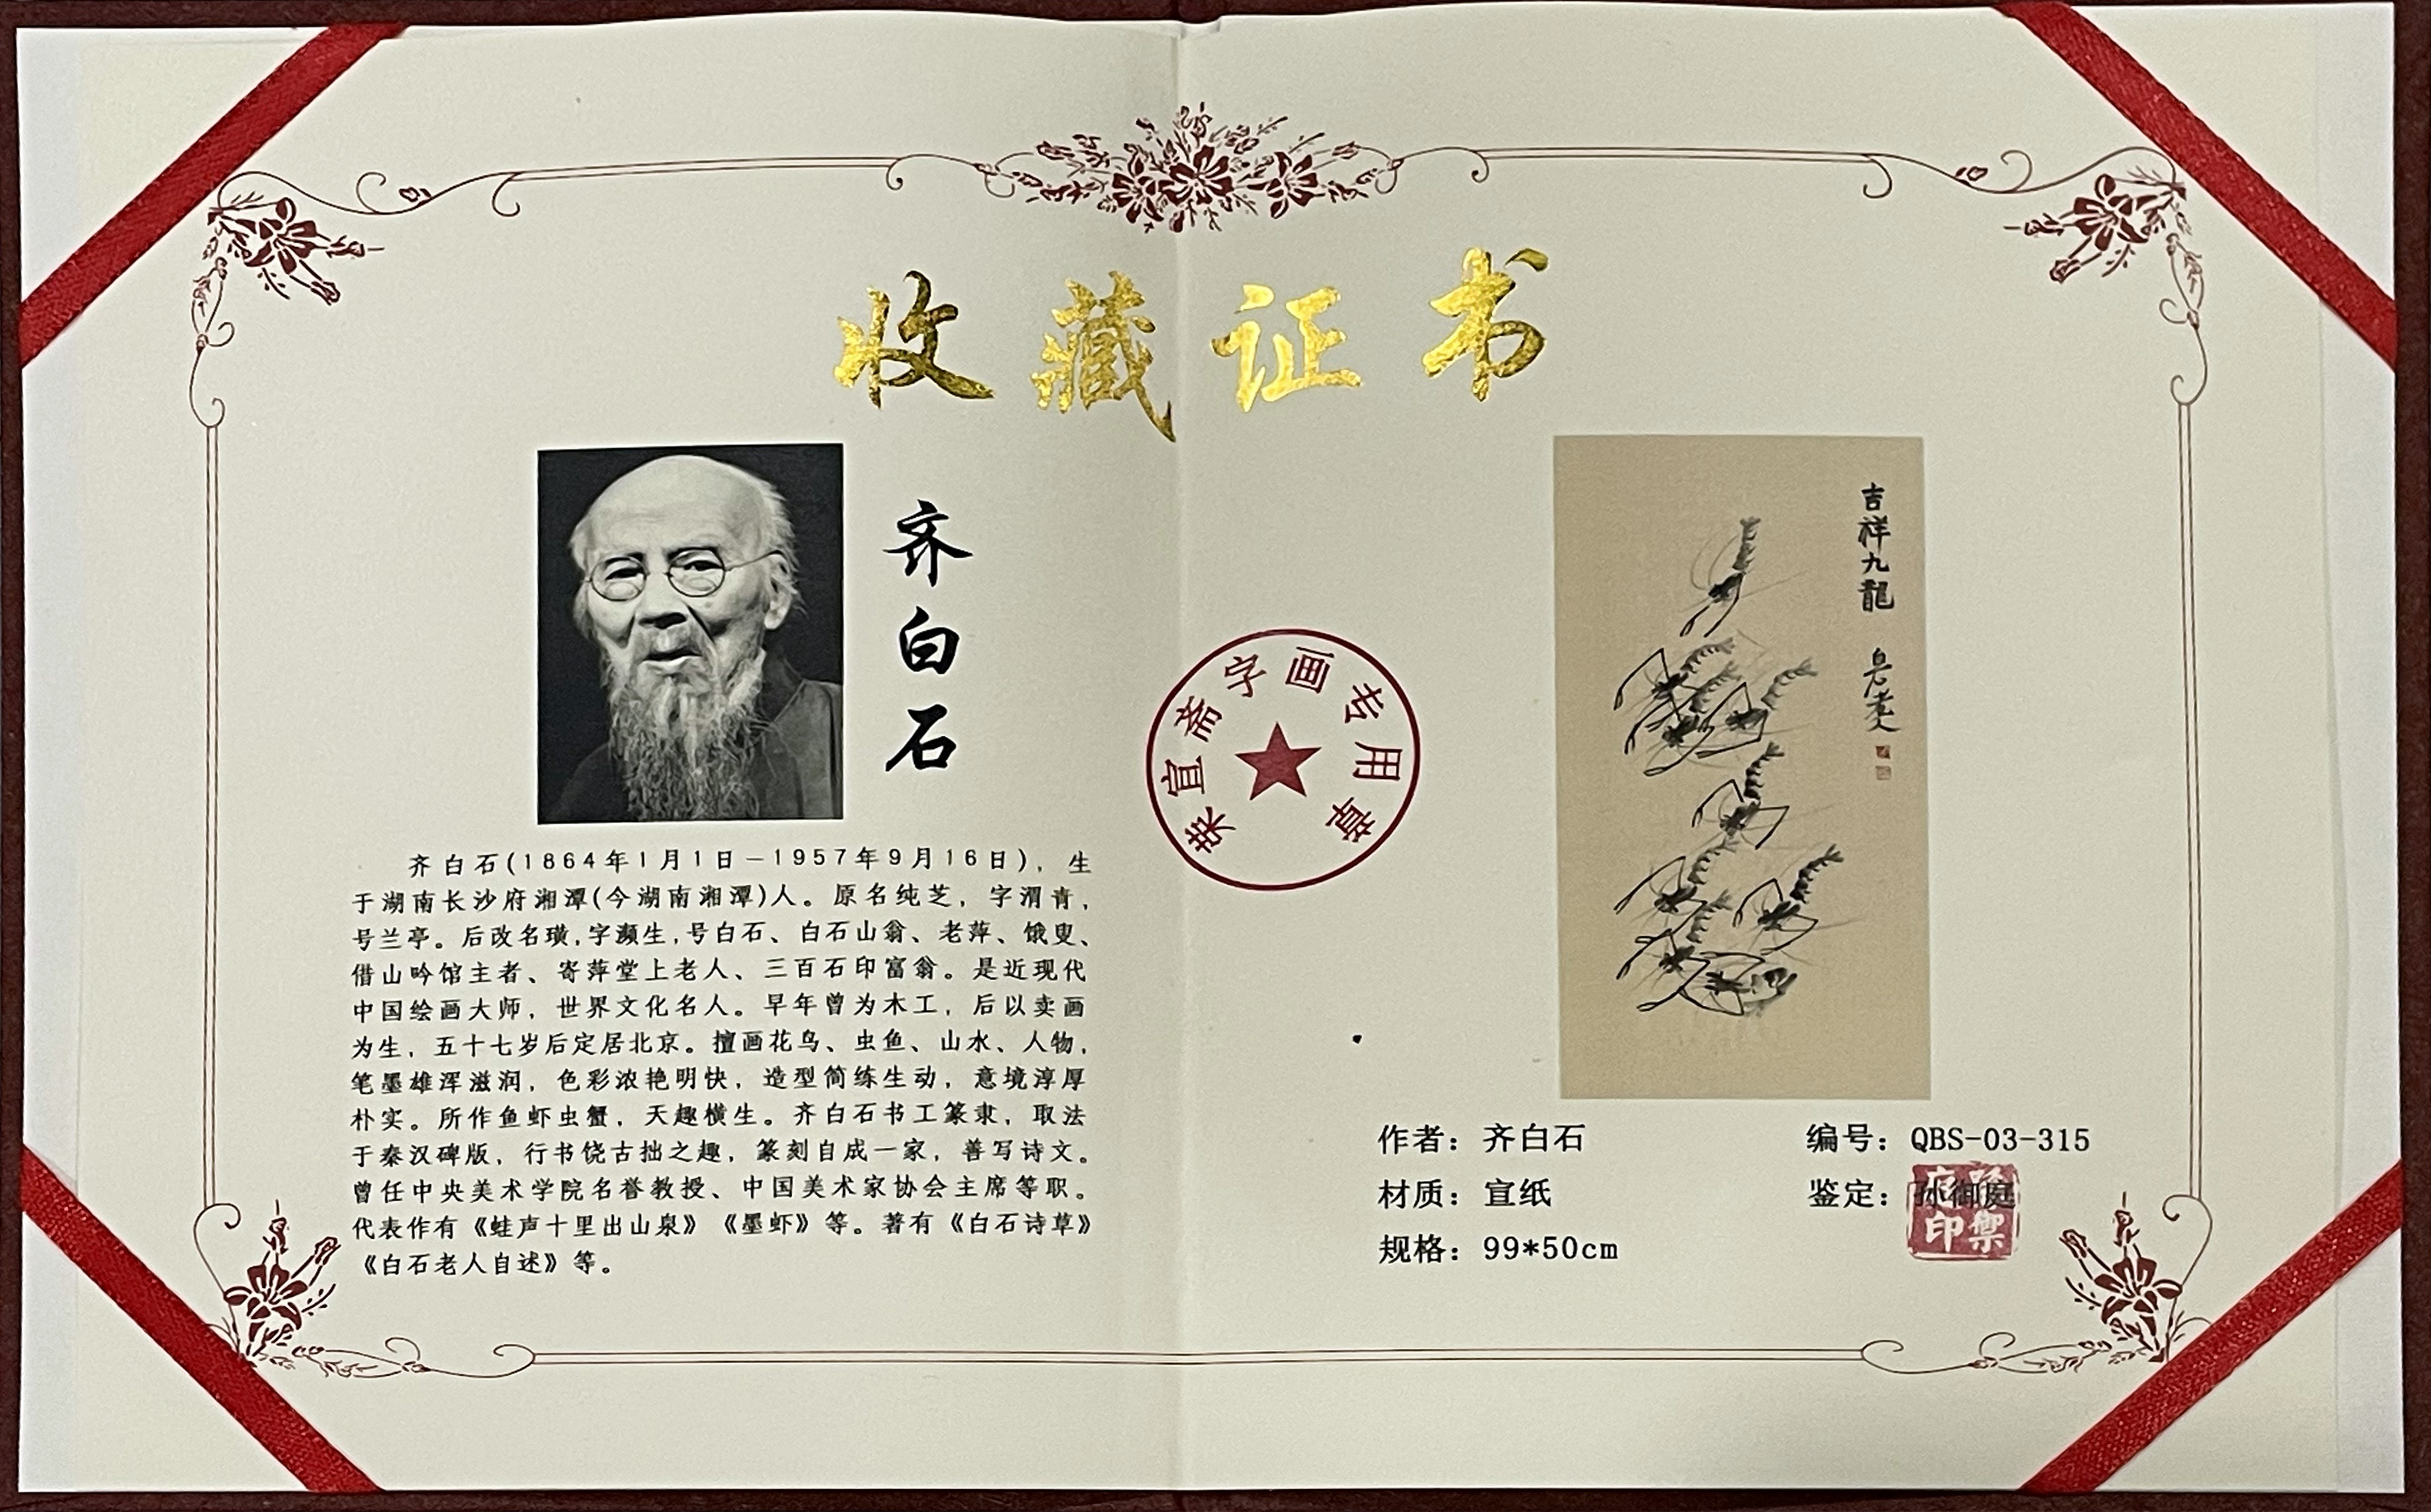 收藏证书
齐白石
齐白石(1864年1月1日-1957年9月16日)，生
于湖南长沙府湘潭(今湖南湘潭)人。原名纯芝，字渭青，
号兰亭。后改名璜,字濒生,号白石、白石山翁、老萍、饿叟、
借山吟馆主者、寄萍堂上老人、三百石印富翁。是近现代
中国绘画大师，世界文化名人。早年曾为木工，后以卖画
为生，五十七岁后定居北京。擅画花鸟、虫鱼、山水、人物，
笔墨雄浑滋润，色彩浓艳明快，造型简练生动，意境淳厚
朴实。所作鱼虾虫蟹，天趣横生。齐白石书工篆隶，取法
于秦汉碑版，行书饶古拙之趣，篆刻自成一家，善写诗文。
曾任中央美术学院名誉教授、中国美术家协会主席等职。
代表作有《蛙声十里出山泉》《墨虾》等。著有《白石诗草》
《白石老人自述》等。
荣宣斋字画专用章
吉祥九龍
作者：齐白石
材质：宣纸
规格：99*50cm
编号：QBS-03-315
鉴定：孙御庭